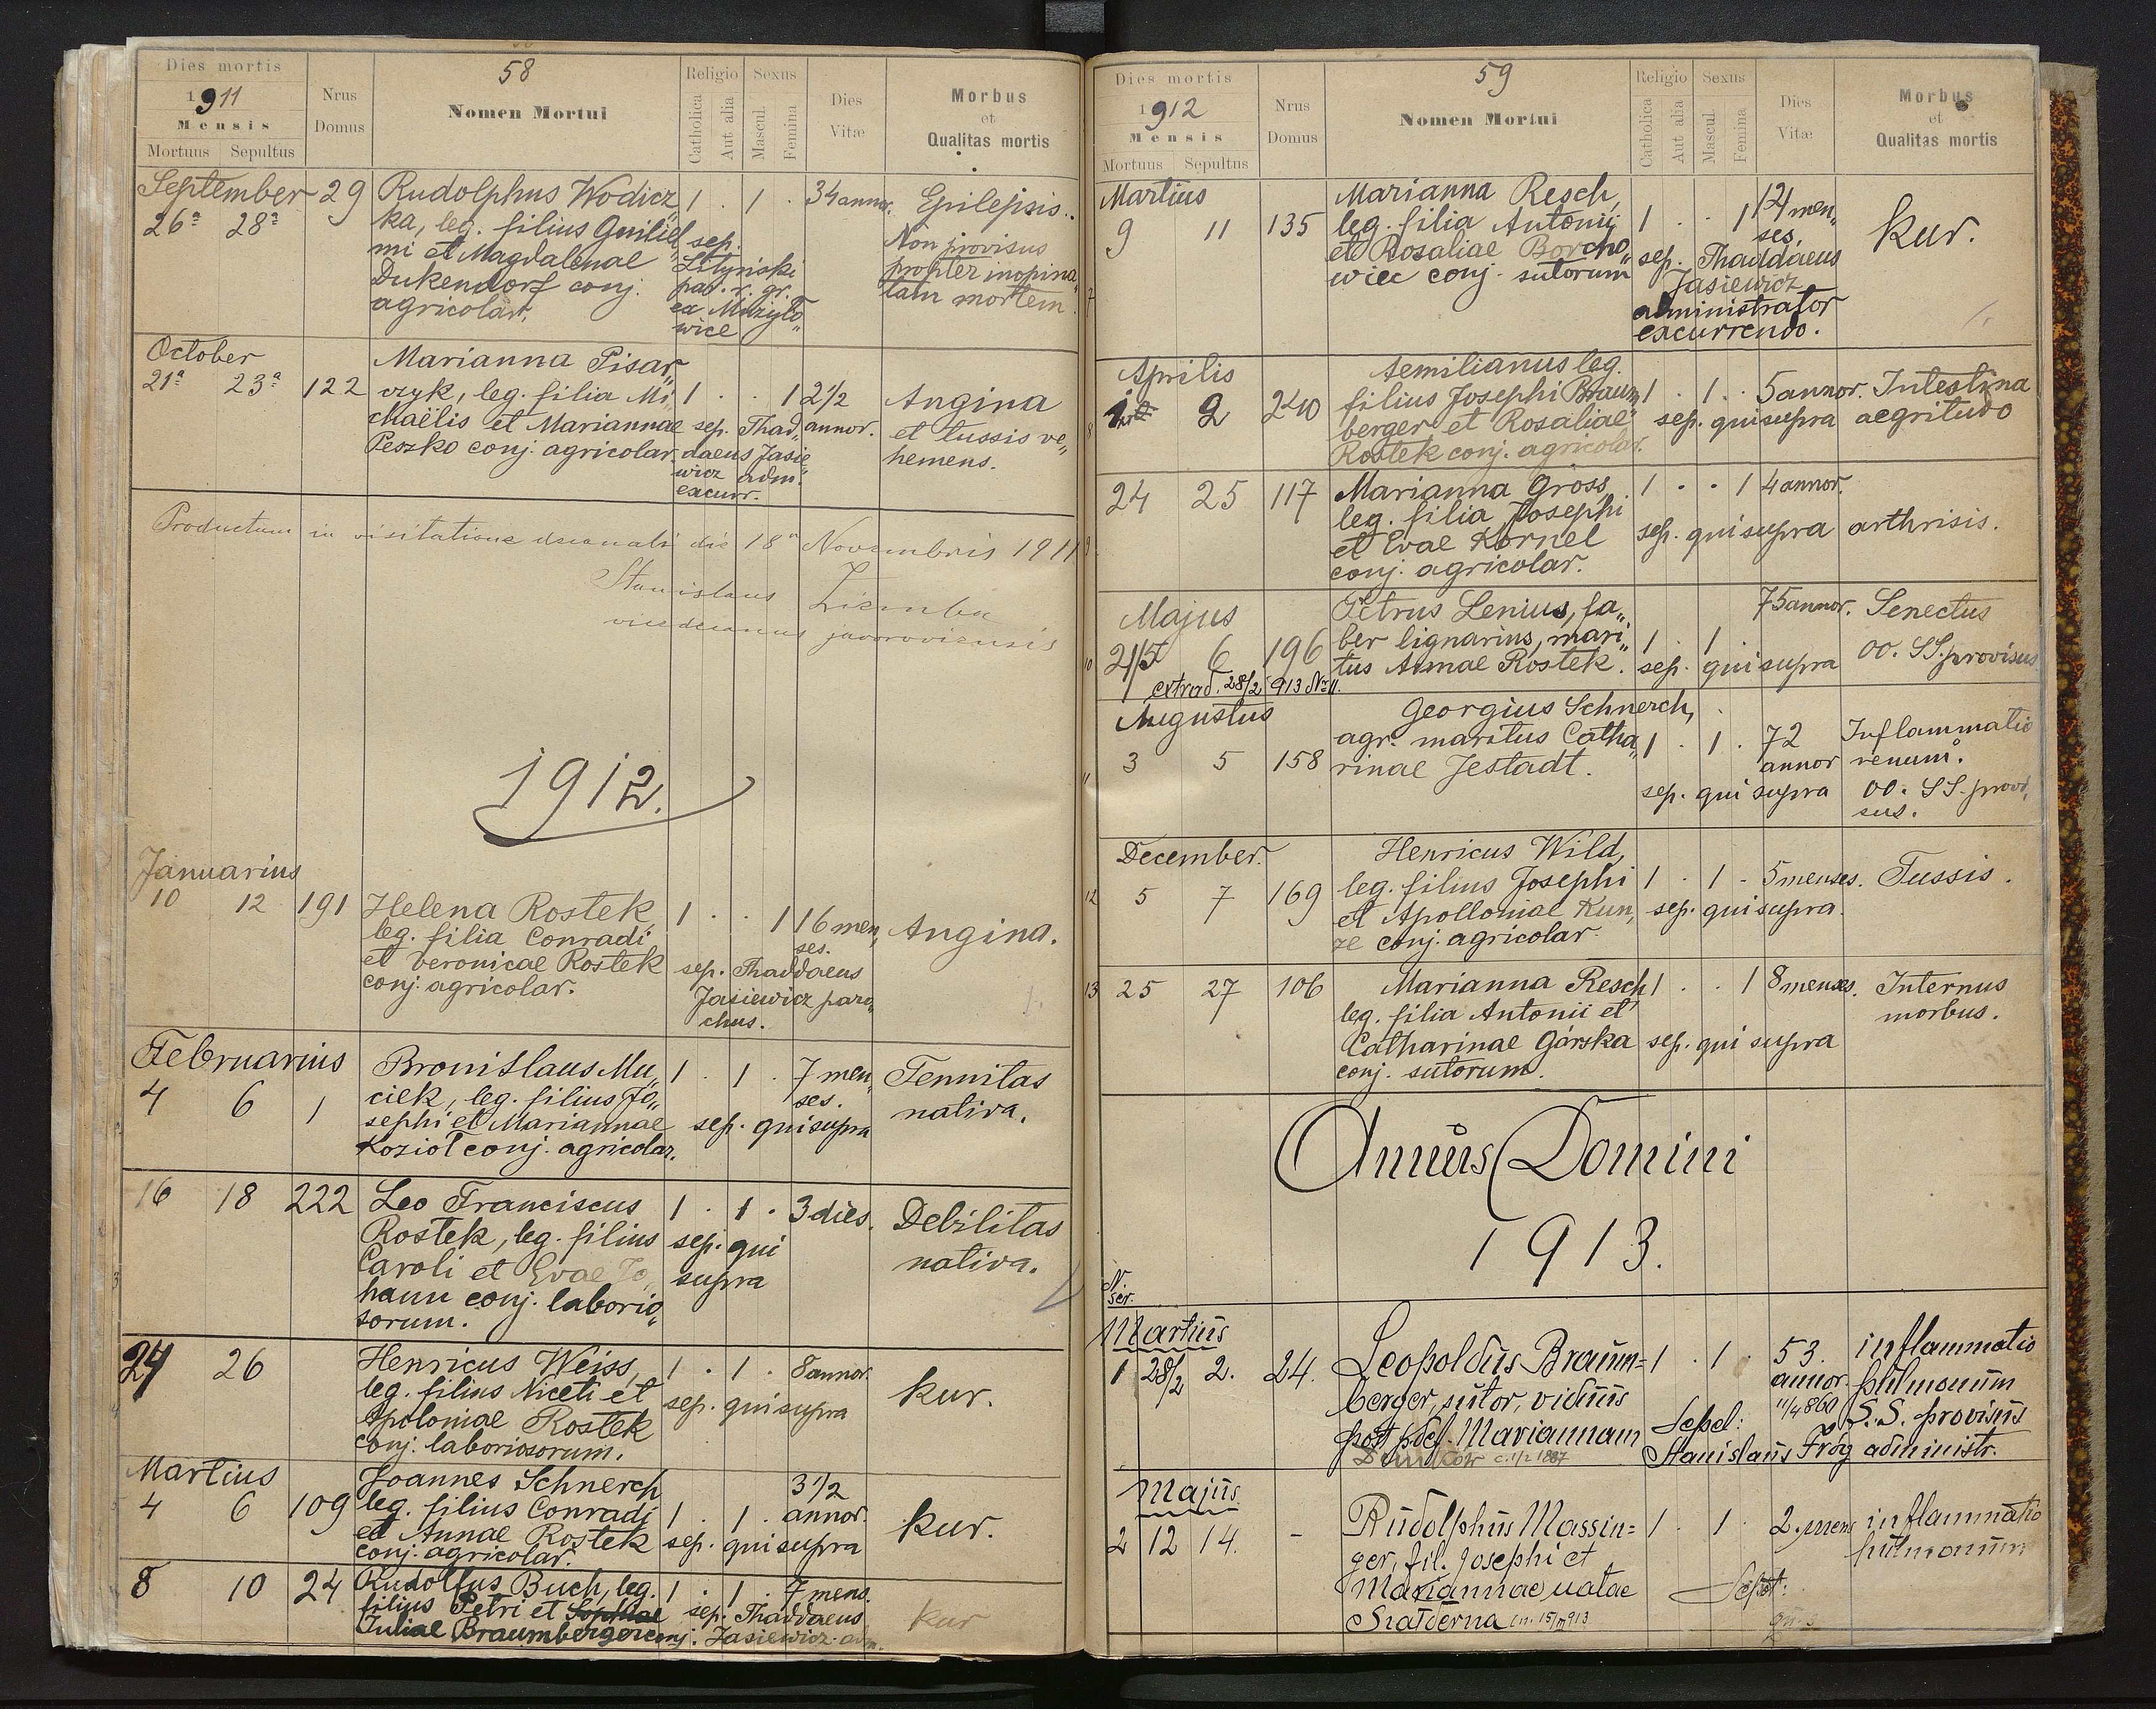 Dies mortis
1911
Mensis
Mortuus Sepultus
Nrus
Domus
58
Nomen Mortui
Religio
Catholica
Aut alia
Sexus
Mascul.
Femina
Dies
Vitæ
Morbus
et
Qualitas mortis
September 29 Rudolphus Wodicz„ 1 . 1 . 34 annor. Epilepsis.
26ª 28ª ka, leg. filius Guiliel„ sep. Non provisus
mi et Magdalenae Litynski propter inopina„
Dukendorf conj. par. r. gr. tam mortem.
agricolar. ex Mużyło„
wice
October Marianna Pisar„
21ª 23ª 122 czyk, leg. filia Mi„ 1 . . 1 2½ Angina
chaëlis et Mariannae sep. Thad„ annor. et tussis ve„
Peszko conj. agricolar. daeus Jasie„ hemens.
wicz adm.
excurr.
Productum in visitatione decanali die 18ª Novembris 1911
Stanislaus Ziemba
vicedecanus javoroviensis
1912.
Januarius
10 12 191 Helena Rostek 1 . . 1 16 men„ Angina.
leg. filia Conradi ses.
et Veronicae Rostek sep. Thaddaeus
conj. agricolar. Jasiewicz paro„
chus.
Februarius Bronislaus Mu„ 1 . 1 . 7 men„ Tennitas
4 6 1 ciek, leg. filius Jo„ ses. nativa.
sephi et Mariannae sep. qui supra
Kozioł conj. agricolar.
16 18 222 Leo Franciscus 1 . 1 . 3 dies. Debilitas
Rostek, leg. filius sep. qui nativa.
Caroli et Evae Jo„ supra
hann conj. laborio„
sorum.
24 26 Henricus Weiss, 1 . 1 . 8 annor. kur.
leg. filius Niceti et sep. qui supra
Apoloniae Rostek
conj. laboriosorum.
Martius Joannes Schnerch 3½
4 6 109 leg. filius Conradi 1 . 1 . annor. kur.
et Annae Rostek sep. qui supra
conj. agricolar.
8 10 24 Rudolfus Buch, leg. 1 . 1 . 7 mens. kur
filius Petri et Sophiae sep. Thaddaeus
Juliae Braumberger conj. Jasiewicz adm.
Dies mortis
1912
Mensis
Mortuus Sepultus
Nrus
Domus
59
Nomen Mortui
Religio
Catholica
Aut alia
Sexus
Mascul
Femina
Dies
Vitæ
Morbus
et
Qualitas mortis
Martius Marianna Resch,
9 11 135 leg. filia Antonii 1 . . 1 12 men„ kur.
et Rosaliae Borcho„ ses.
wiec conj. sutorum sep. Thaddaeus
7 Jasiewicz
administrator
excurrendo.
Aprilis Aemilianus leg.
8 2 240 filius Josephi Braum„ 1 . 1 . 5 annor. Intestina
berger et Rosaliae sep. qui supra aegritudo
Rostek conj. agricolar.
9 24 25 117 Marianna Gross, 1 . . 1 4 annor.
leg. filia Josephi sep. qui supra arthrisis.
et Evae Kornel
conj. agricolar.
Majus Petrus Lenius, fa„ 75 annor. Senectus
10 6 196 ber lignarius, mari„ 1 . 1 . OO. SS. provisus
tus Annae Rostek. sep. qui supra
extrad. 28/2 913 Nr 11.
Augustus Georgius Schnerch,
11 3 5 158 agr. maritus Catha„ 1 . 1 . 72 Inflammatio
rinae Jestadt. annor renum.
sep. qui supra OO. SS. provi„
sus.
December. Henricus Wild,
12 5 7 169 leg. filius Josephi 1 . 1 . 5 menses. Tussis.
et Apolloniae Kun„ sep. qui supra.
ze conj. agricolar.
13 25 27 106 Marianna Resch 1 . . 1 8 menses. Internus
leg. filia Antonii et morbus.
Catharinae Górska sep. qui supra
conj. sutorum.
Annus Domini
1913.
N.
ser.
Martius
1 28/2 2. 24. Leopoldus Braum= 1 . 1 . 53. inflammatio
berger, sutor, viduus annor. pulmonum
post p. def. Mariannam Sepel: 11/4 860 S.S. provisus
c. 1/2 1887 Stanislaus Fróg administr.
Majus
2 12 14. - Rudolphus Massin= 1 . 1 . 2. mens inflammatio
ger, fil. Josephi et pulmonum
Mariannae natae Sepel:
n. 15/III 913